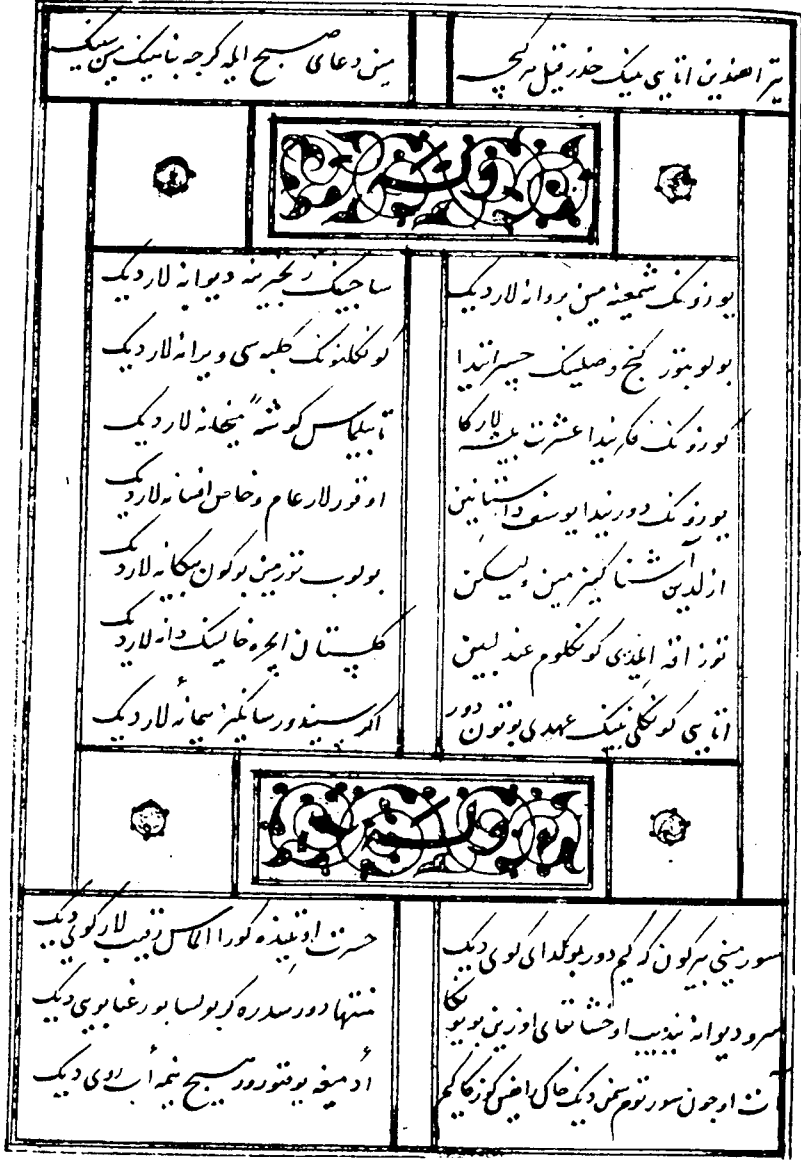 تیر اهندین اتایی نینک حذر قیل هر کیچه مین دعای صبح ایله کرجه
وله
یوزونک شمعینه مین پروانه لاردیک ساجینک زنجیرینه دیوانه لاردیک
بولوبتور کنج وصلینک حسرتیندا کونکلنونک کلبه سی ویرانه لاردیک
کوزونک فکریندا عشرت پیشه لارکا تابیلماس کوشهٔ میخانه لاردیک
یوزونک دوریندا یوسف داستانین اوقورلار عام و خاص افسانه لاردیک
ازلدین آشنا کیز مین ولیکن بولوب تورمین بوکون بیکانه لاردیک
توزاقه ایلدی کونکلوم عندلیبین کلستان ایچره خالینک دانه لاردیک
اتایی کونکلی نینک عهدی بوتون دور اکر سیندورسانکیز پیمانه لاردیک
وله
سورمینی بیر کون که کیم دور بو کدای کوی دیک حسرت اوتیده کورا الماس رقیب لار کوی دیک
سرو دیوانه اوخشاتقای اوزین بویونکا منتها دور سدره کر بولسا بو رعنا بوی دیک
دیک خاک کوزکا کیم آدمیغه یوقتورور مسیح روی دیک